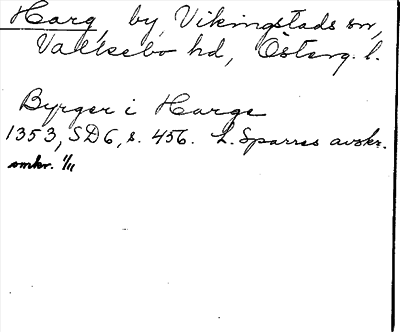 Harg, by, Vikingstads sn,
Valkebo hd, Österg. l.
Byrger i Harge
1353, SD6, s. 456. L. Sparres avskr.
omkr. 1/11